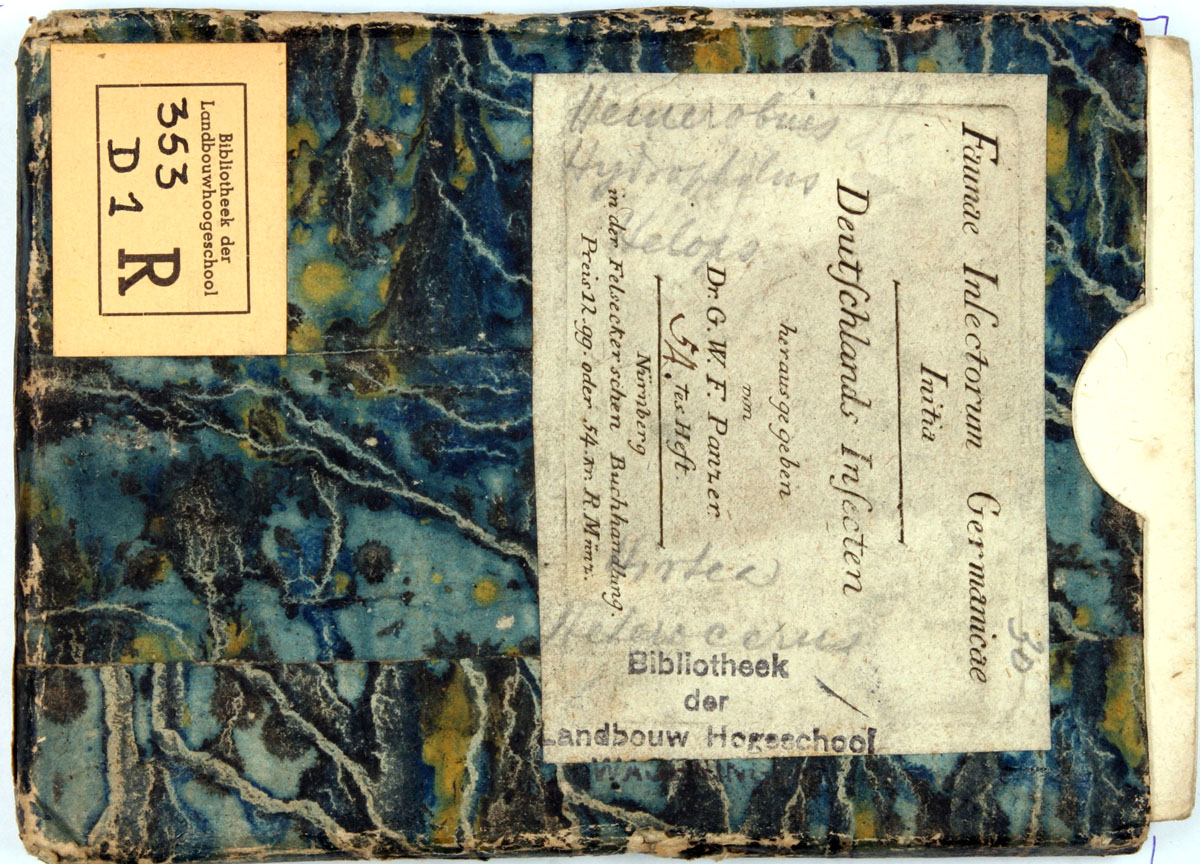 Bibliotheek der
Landbouwhoogeschool
353
D1 R
Faunae Insectorum Germanicae
Initia
Deutschlands Insecten
herausgegeben
von
Dr. G. W. F. Panzer
54. tes Heft.
Nürnberg
in der Felseckerschen Buchhandlung.
Preis 12. gg. oder 54. kr. R. Münz.
Hemerobius
Hydrophilus
Helops
Hirtea
Heterocerus
30
Bibliotheek
der
Landbouw Hogeschool